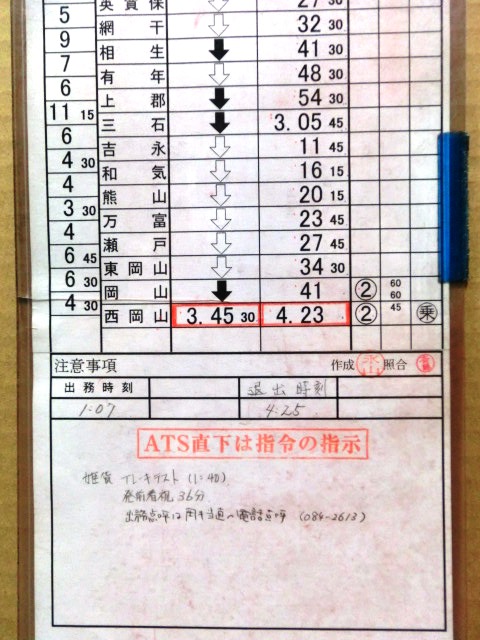 5 英賀保 27 30
9 網干 32 30
7 相生 41 30
6 有年 48 30
11 15 上郡 54 30
6 三石 3.05 45
4 30 吉永 11 45
4 和気 16 15
3 30 熊山 20 15
4 万富 23 45
6 45 瀬戸 27 45
6 30 東岡山 34 30
4 30 岡山 41 ② 60 60
西岡山 3.45 30 4.23 ② 45 乗
注意事項 作成 照合
出務時刻 退出時刻
1:07 4:25
ATS直下は指令の指示
姫貨 ブレーキテスト (1:40)
発前看視 36分
出務点呼は岡キ当直へ電話点呼 (084-2613)